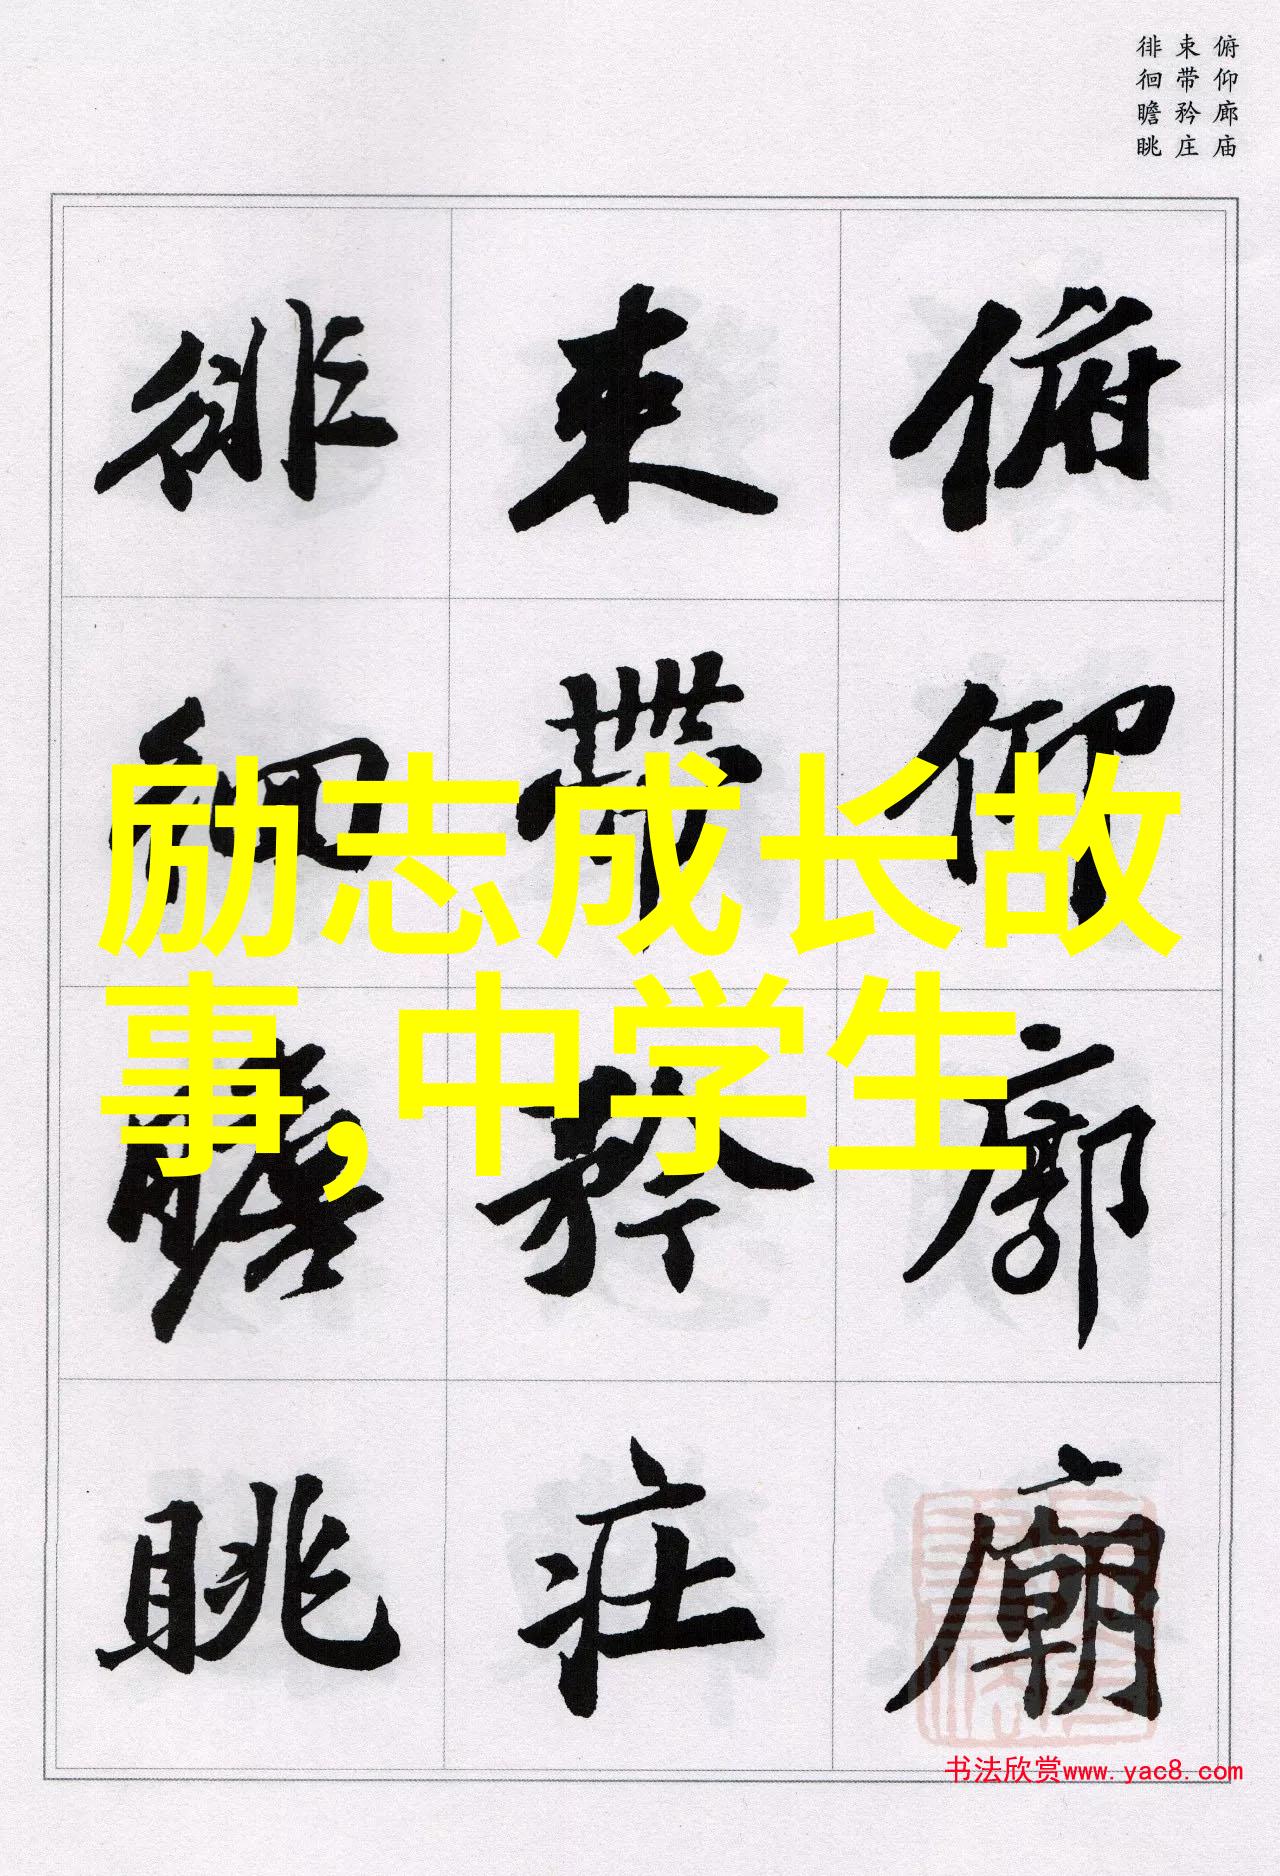 俯仰廊庙
束带矜庄
徘徊瞻眺
俯仰廊廟
束帶矜莊
徘徊瞻眺
励志成长故
事,中学生
书法欣赏www.yac8.com